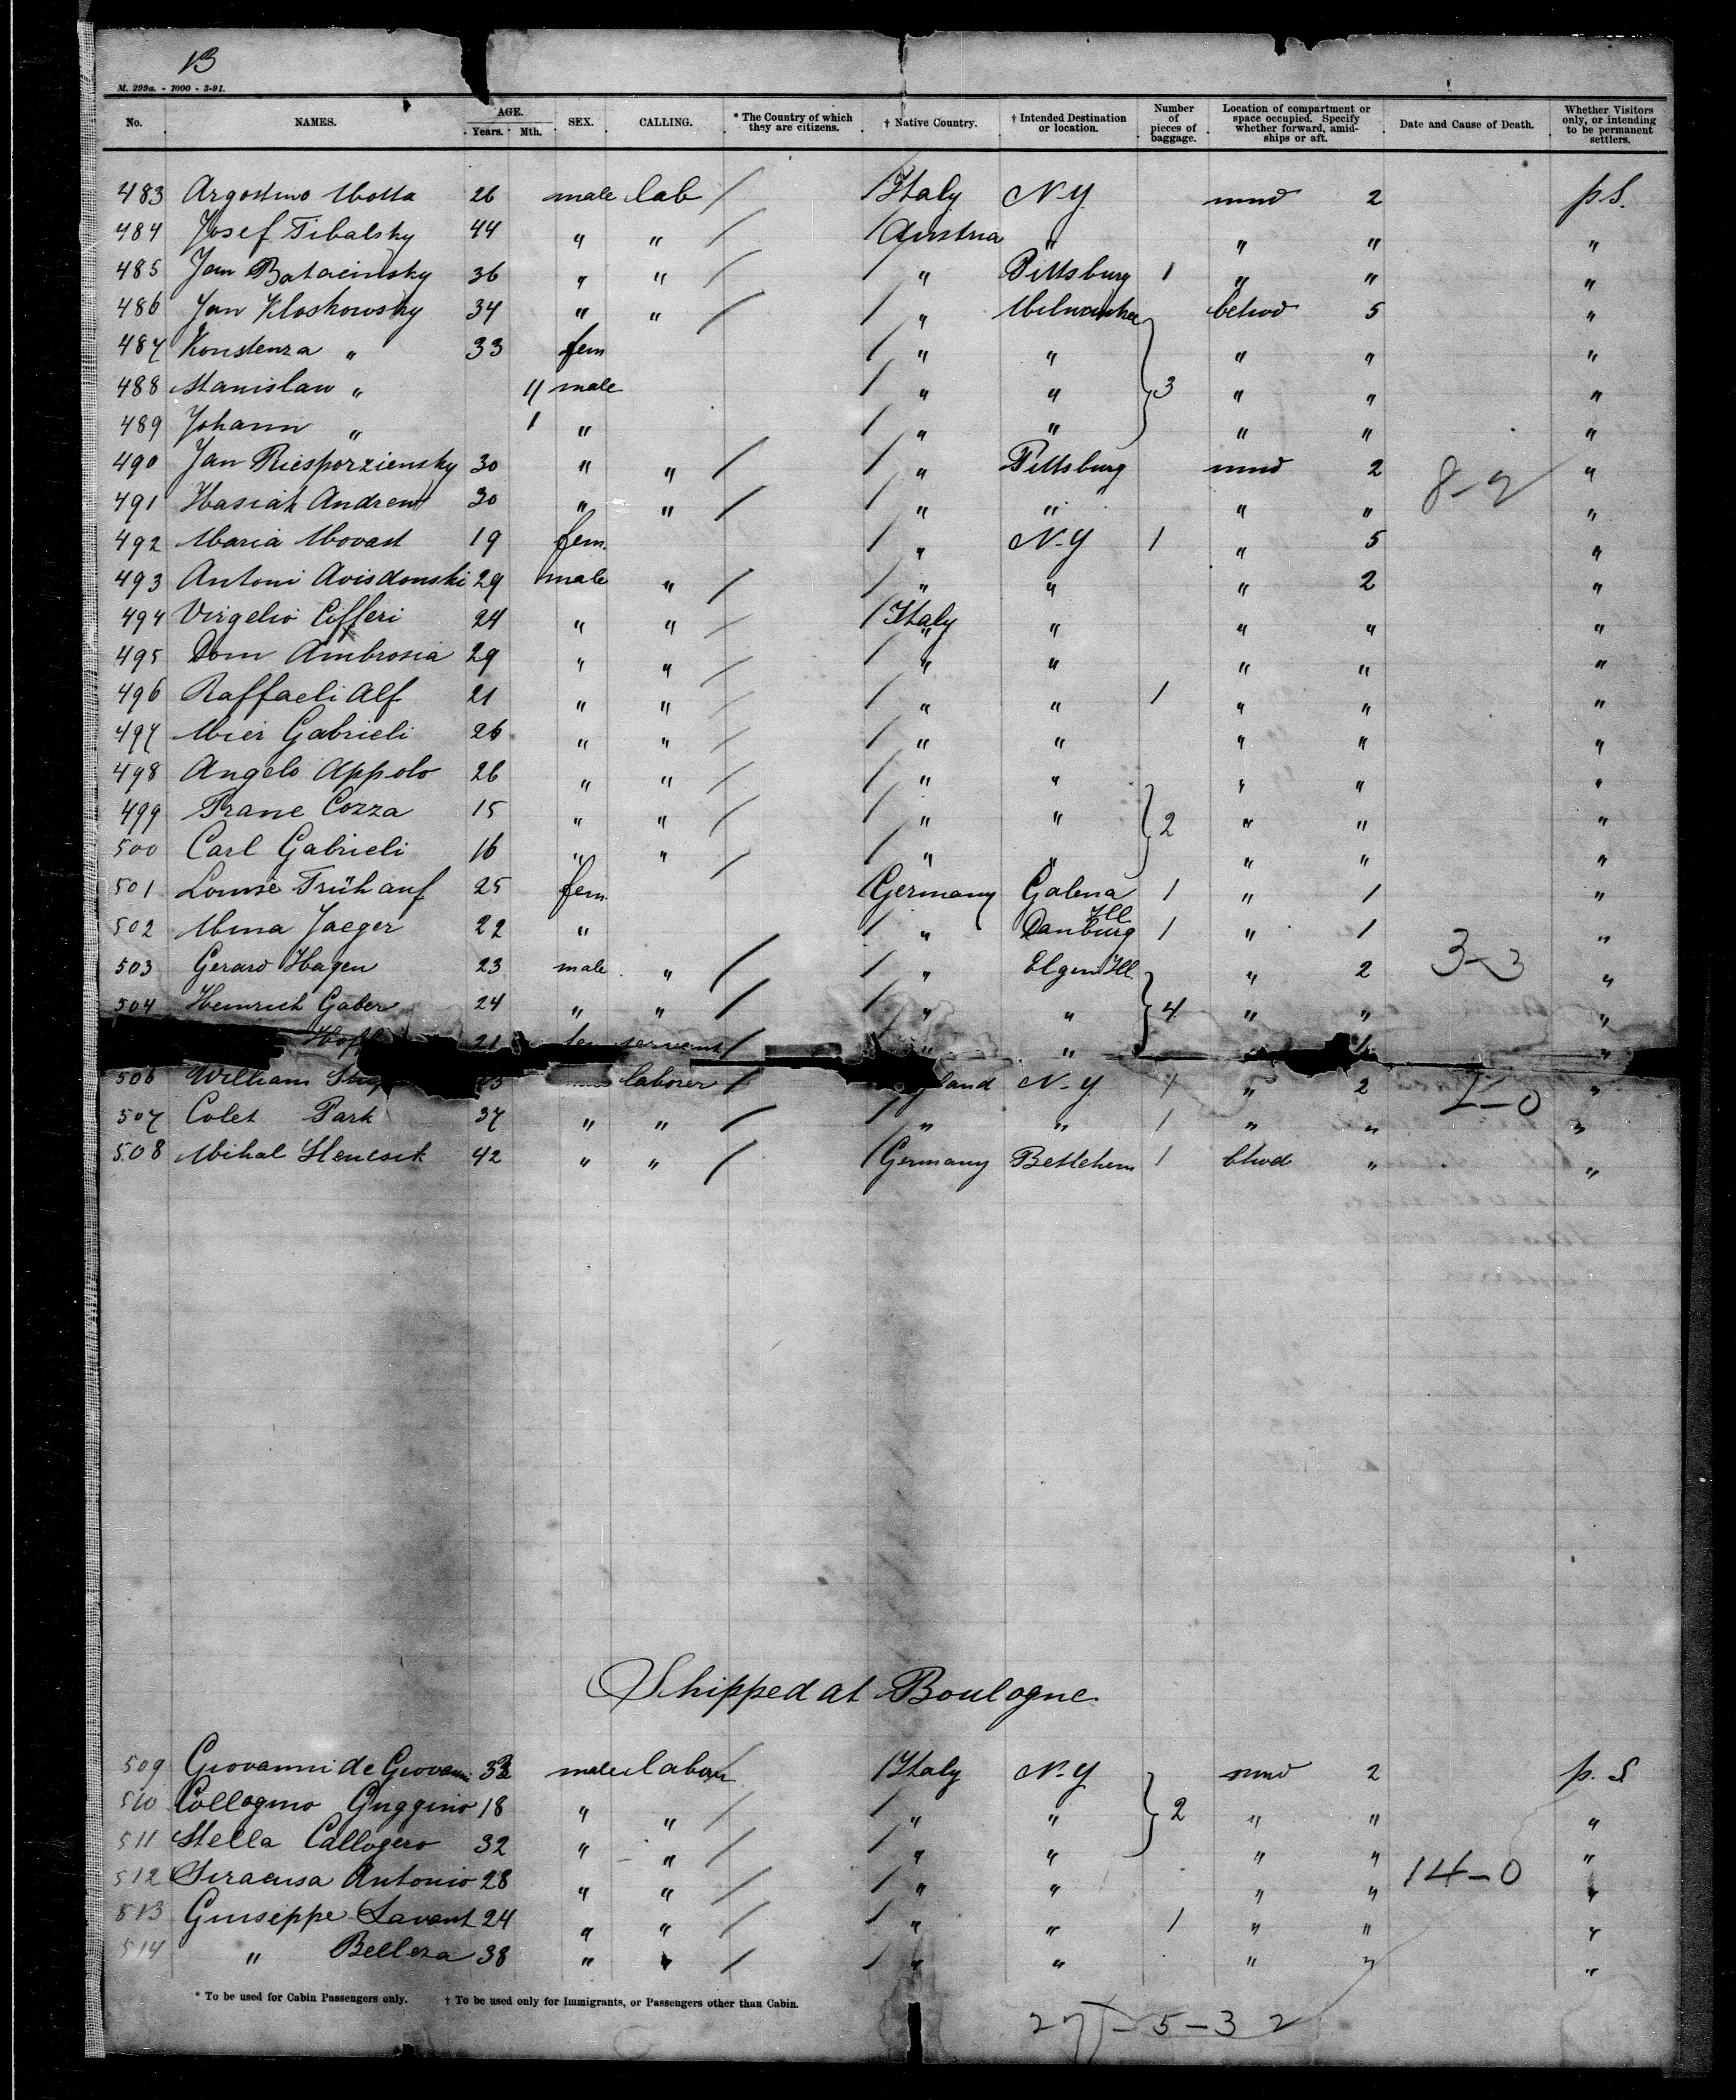 13
M. 299a. - 1000 - 3-91.
No. NAMES. AGE. Years. Mth. SEX. CALLING. * The Country of which they are citizens. † Native Country. † Intended Destination or location. Number of pieces of baggage. Location of compartment or space occupied. Specify whether forward, amidships or aft. Date and Cause of Death. Whether Visitors only, or intending to be permanent settlers.
483 Argostino Motta 26 male lab / / Italy N.Y. 2 p.S.
484 Josef Tibalsky 44 " " / / Austria " " " "
485 Jan Batacinsky 36 " " / / " Pittsburg 1 " " "
486 Jan Kloskowsky 34 " " / / " Milwaukee behwd 5 "
487 Konstenza " 33 fem / " " " " "
488 Stanislaw " 11 male / " " 3 " " "
489 Johann " 1 " / " " " " "
490 Jan Riesporziensky 30 " " / / " Pittsburg 2 8-2 "
491 Hasiak Andrew 30 " " / / " " " " "
492 Maria Movast 19 fem. / " N.Y 1 " 5 "
493 Antoni Avisdonski 29 male " / / " " " 2 "
494 Virgelio Cifferi 24 " " / / Italy " " " "
495 Dom Ambrosia 29 " " / / " " " " "
496 Raffaeli Alf 21 " " / / " " 1 " " "
497 Mier Gabrieli 26 " " / / " " " " "
498 Angelo Appolo 26 " " / / " " " " "
499 Franc Cozza 15 " " / / " " 2 " " "
500 Carl Gabrieli 16 " " / / " " " " "
501 Louise Frühauf 25 fem / Germany Galena Ill 1 " 1 "
502 Mina Jaeger 22 " / " Danburg 1 " 1 "
503 Gerard Hagen 23 male " / / " Elgin Ill. " 2 3-3 "
504 Heinrich Gaber 24 " " / / " " 4 " " "
21 servant / " " 1 "
506 William laborer / land N.Y. 1 " 2 "
507 Colet Park 37 " " / / " " 1 " " "
508 Mihal Hencsik 42 " " / / Germany Betlehem 1 bhwd " "
Shipped at Boulogne.
509 Giovanni de Giovanni male labour / / Italy N.Y 2 p. S
510 Collogino Guggino 18 " " / / " " 2 " " "
511 Stella Callogero 32 " " / / " " " " "
512 Siracusa Antonio 28 " " / / " " " " 14-0 "
513 Giuseppe Lavent 24 " " / / " " 1 " " "
514 " Belleza 38 " " / / " " " " "
* To be used for Cabin Passengers only. † To be used only for Immigrants, or Passengers other than Cabin.
27-5-32